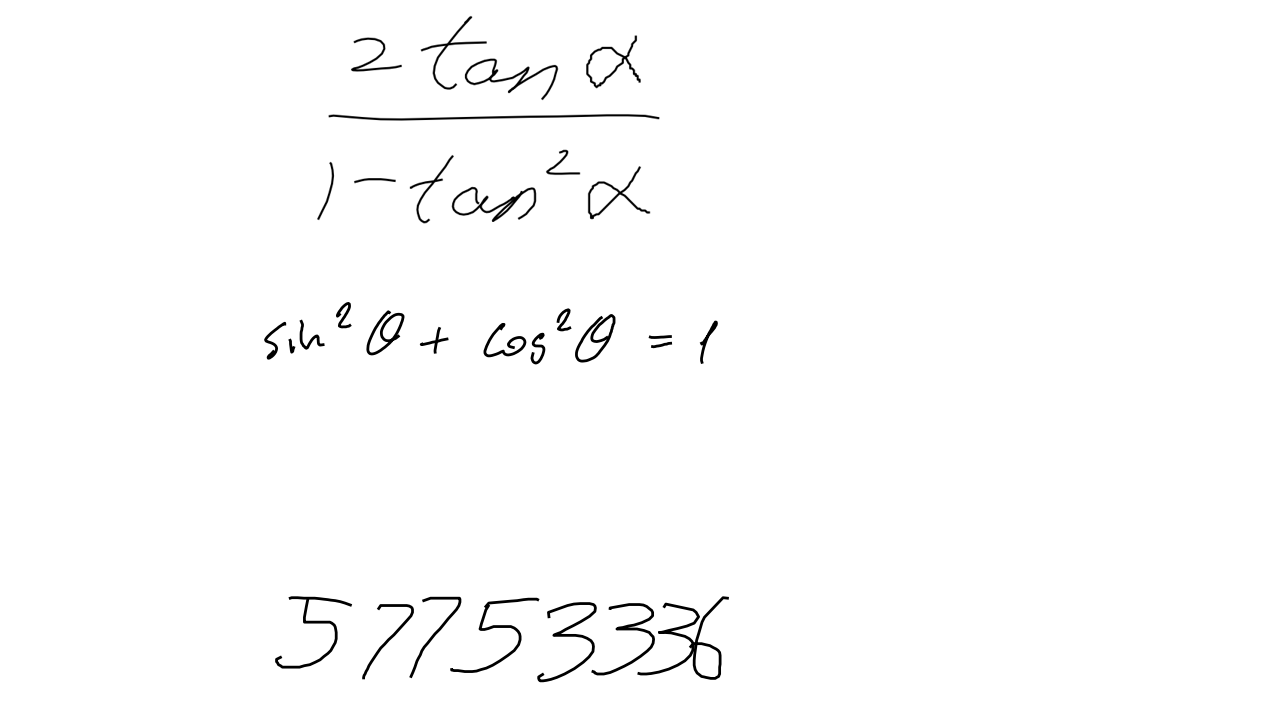 \frac{2 \tan \alpha}{1 - \tan^2 \alpha}
sin² θ + cos² θ = 1
57753336